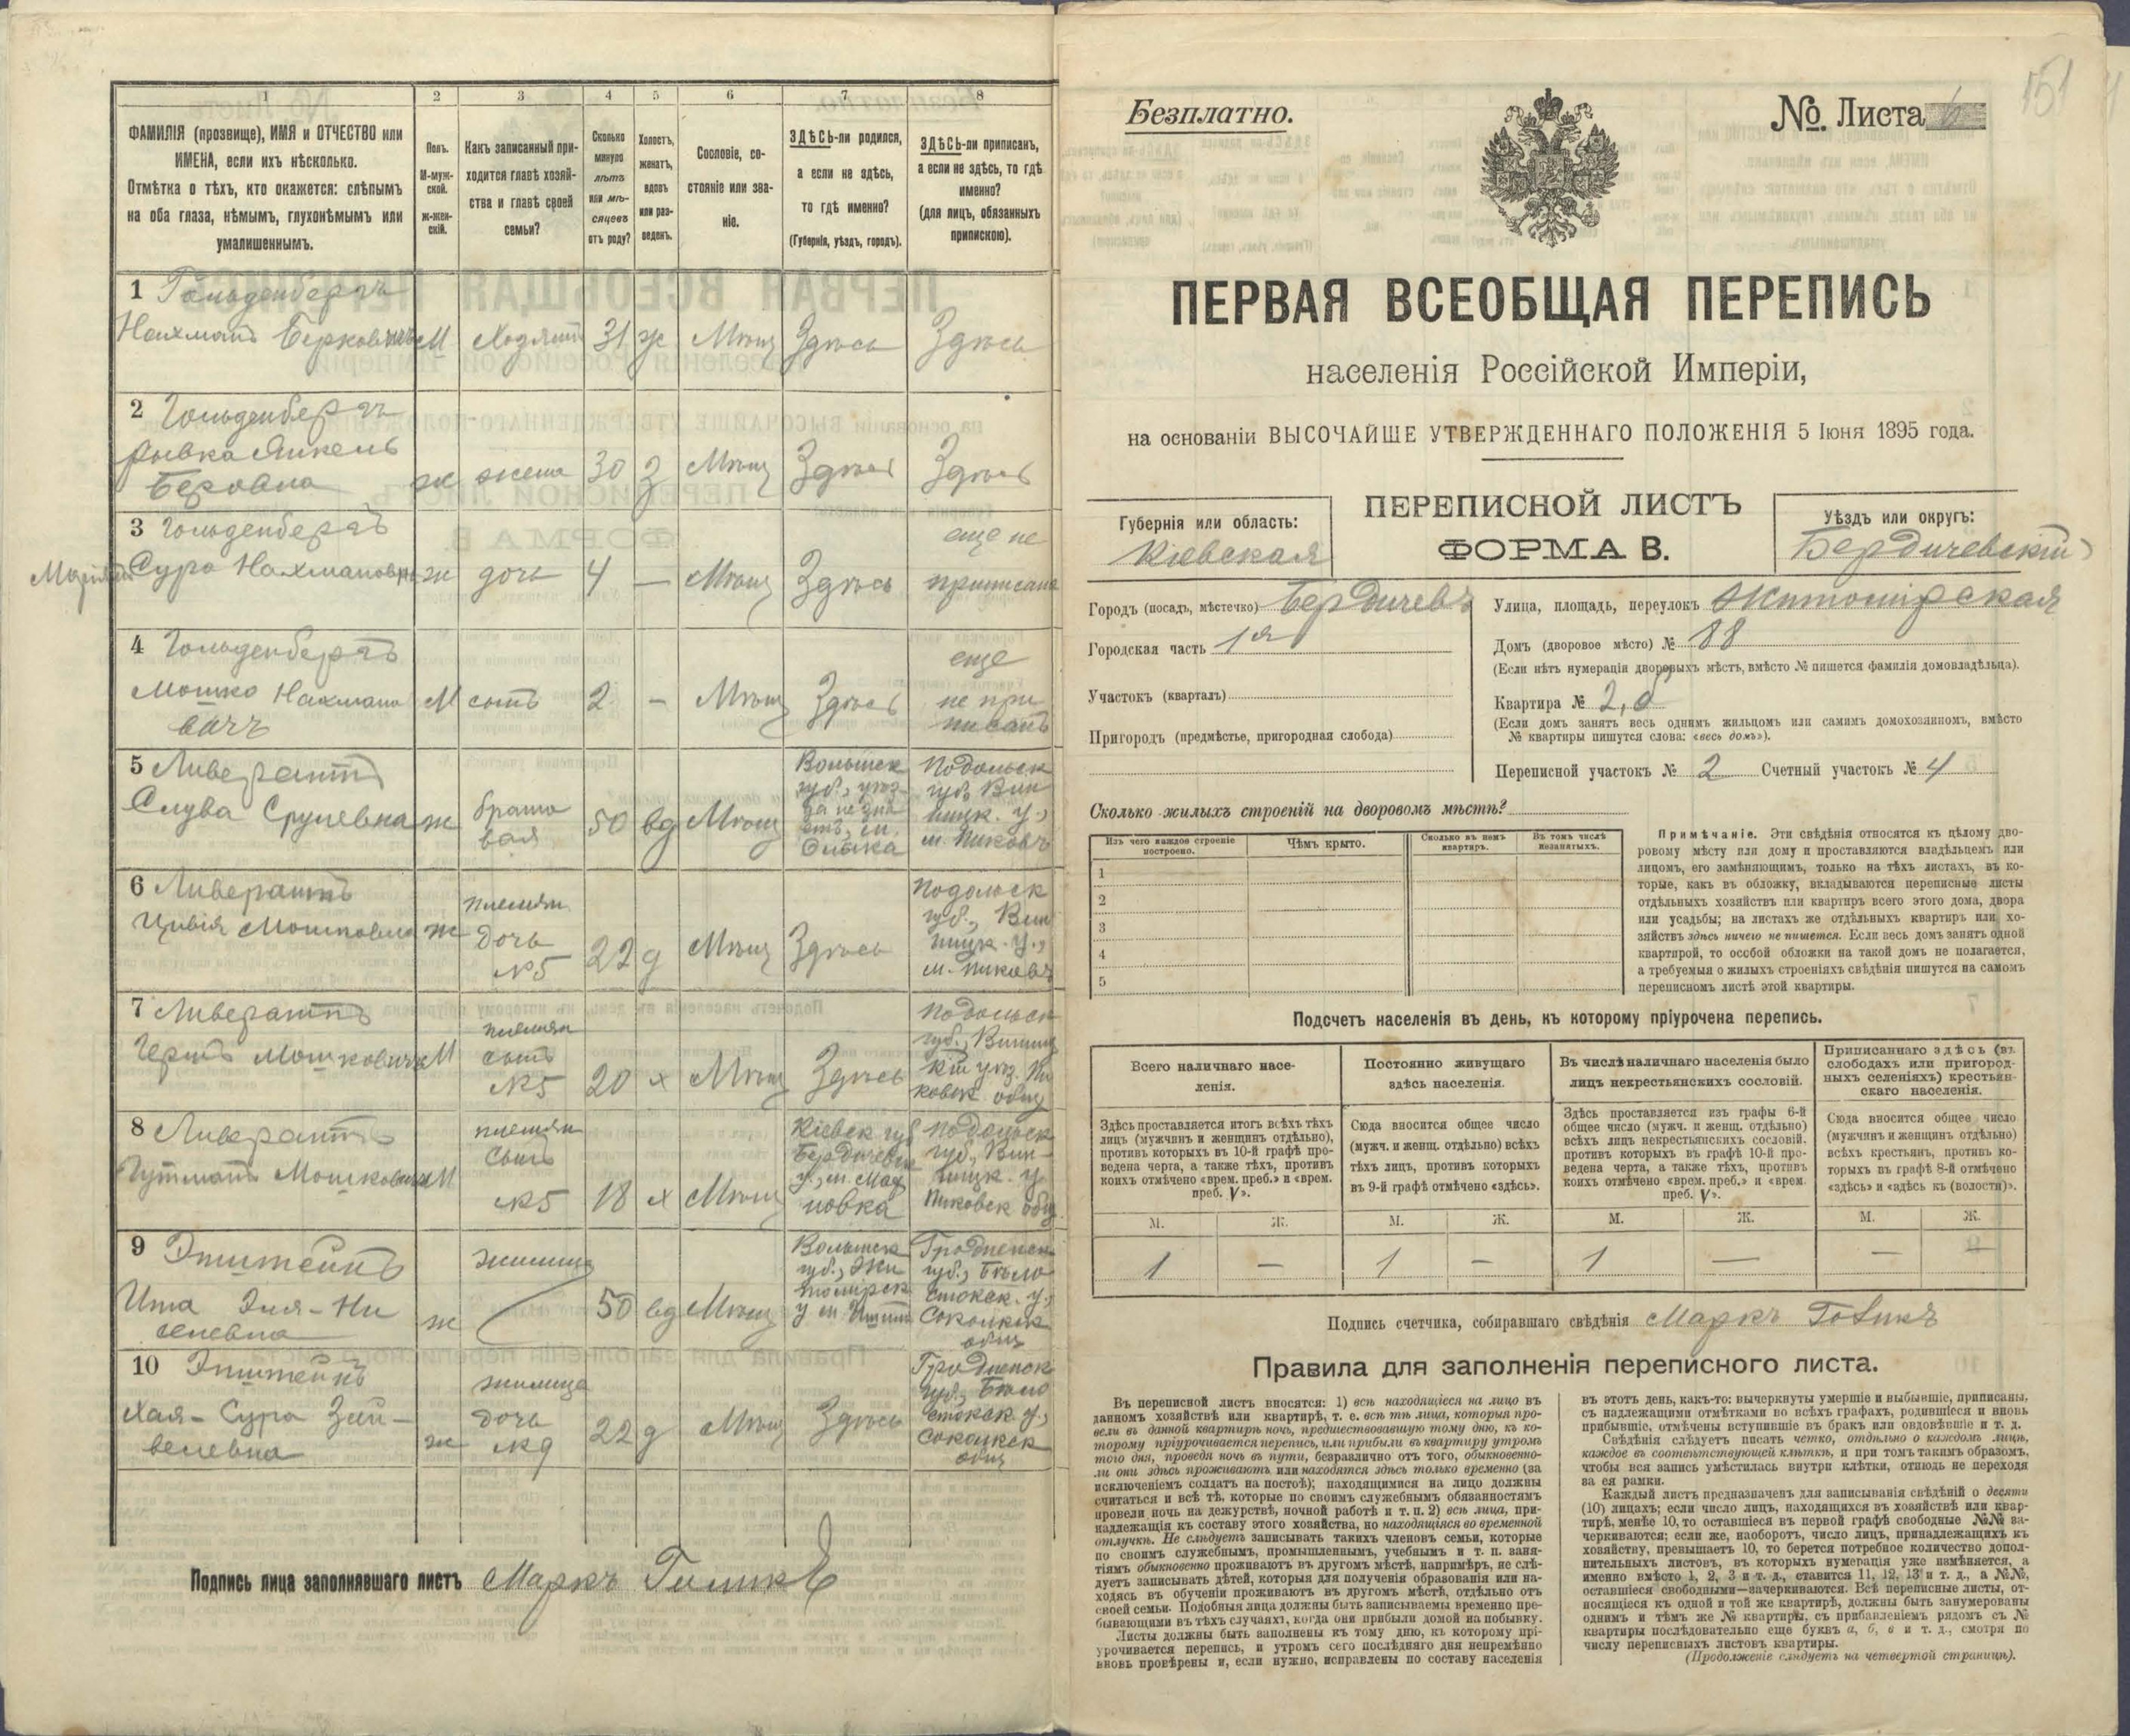 1 2 3 4 5 6 7 8
ФАМИЛІЯ (прозвище), ИМЯ и ОТЧЕСТВО или
ИМЕНА, если ихъ нѣсколько.
Отмѣтка о тѣхъ, кто окажется: слѣпымъ
на оба глаза, нѣмымъ, глухонѣмымъ или
умалишеннымъ.
Полъ.
М-муж-
ской.
Ж-жен-
скій.
Какъ записанный при-
ходится главѣ хозяй-
ства и главѣ своей
семьи?
Сколько
минуло
лѣтъ
или мѣ-
сяцевъ
отъ роду?
Холостъ,
женатъ,
вдовъ
или раз-
веденъ.
Сословіе, со-
стояніе или зва-
ніе.
ЗДѢСЬ-ли родился,
а если не здѣсь,
то гдѣ именно?
(Губернія, уѣздъ, городъ).
ЗДѢСЬ-ли приписанъ,
а если не здѣсь, то гдѣ
именно?
(для лицъ, обязанныхъ
припискою).
1 Гольденбергъ
Нахманъ Берковичъ М Хозяинъ 31 ж Мѣщ Здѣсь Здѣсь
2 Гольденбергъ
Рывка Янкель
Беровна ж жена 30 З Мѣщ Здѣсь Здѣсь
3 Гольденбергъ
Сура Нахмановна ж дочь 4 — Мѣщ Здѣсь еще не
приписана
4 Гольденбергъ
Мошко Нахмано
вичъ М сынъ 2 - Мѣщ Здѣсь еще
не при
писанъ
5 Ливерантъ
Слува Срулевна ж брато
вая 50 вд Мѣщ
Волынск
губ., уѣз-
да не зна
етъ, м.
Олыка
Подольск
губ. Вин
ницк. у.,
м. Пиковъ
6 Ливерантъ
Цивія Мошковна ж племян
дочь
№5 22 д Мѣщ Здѣсь
Подольск
губ., Вин
ницк. у.,
м. Пиковъ
7 Ливерантъ
Гершъ Мошковичъ М племян
сынъ
№5 20 х Мѣщ Здѣсь
Подольск
губ., Винниц
кій уѣз. Пи
ковск. общ
8 Ливерантъ
Гутманъ Мошковичъ М племян
сынъ
№5 18 х Мѣщ
Кіевск губ
Бердичевск
у., м. Мах
новка
Подольск
губ., Вин-
ницк. у
Пиковск общ.
9 Эпштейнъ
Ита Эля-Ки
селевна ж жилица 50 вд Мѣщ
Волынск
губ., Жи
томірск
у м.
Гродненск
губ., Бѣло
стокск. у.,
Соколкск
общ
10 Эпштейнъ
Хая-Сура Зей-
велевна ж жилица
дочь
№9 22 д Мѣщ Здѣсь
Гродненск
губ., Бѣло
стокск. у.,
Соколкск
общ
Подпись лица заполнявшаго листъ Маркъ
151
Безплатно.
№ Листа 6
ПЕРВАЯ ВСЕОБЩАЯ ПЕРЕПИСЬ
населенія Россійской Имперіи,
на основаніи ВЫСОЧАЙШЕ УТВЕРЖДЕННАГО ПОЛОЖЕНІЯ 5 Іюня 1895 года.
ПЕРЕПИСНОЙ ЛИСТЪ
ФОРМА В.
Губернія или область:
Кіевская
Уѣздъ или округъ:
Бердичевскій
Городъ (посадъ, мѣстечко) Бердичевъ
Городская часть 1я
Участокъ (кварталъ)
Пригородъ (предмѣстье, пригородная слобода)
Улица, площадь, переулокъ Житомірская
Домъ (дворовое мѣсто) № 88
(Если нѣтъ нумераціи дворовыхъ мѣстъ, вмѣсто № пишется фамилія домовладѣльца).
Квартира № 2,б
(Если домъ занятъ весь однимъ жильцомъ или самимъ домохозяиномъ, вмѣсто
№ квартиры пишутся слова: «весь домъ»).
Переписной участокъ № 2 Счетный участокъ № 4
Сколько жилыхъ строеній на дворовомъ мѣстѣ?
Изъ чего каждое строеніе
построено.
Чѣмъ крыто.
Сколько въ немъ
квартиръ.
Въ томъ числѣ
незанятыхъ.
1
2
3
4
5
Примѣчаніе. Эти свѣдѣнія относятся къ цѣлому дво-
ровому мѣсту или дому и проставляются владѣльцемъ или
лицомъ, его замѣняющимъ, только на тѣхъ листахъ, въ ко-
торые, какъ въ обложку, вкладываются переписные листы
отдѣльныхъ хозяйствъ или квартиръ всего этого дома, двора
или усадьбы; на листахъ же отдѣльныхъ квартиръ или хо-
зяйствъ здѣсь ничего не пишется. Если весь домъ занятъ одной
квартирой, то особой обложки на такой домъ не полагается,
а требуемыя о жилыхъ строеніяхъ свѣдѣнія пишутся на самомъ
переписномъ листѣ этой квартиры.
Подсчетъ населенія въ день, къ которому пріурочена перепись.
Всего наличнаго насе-
ленія.
Постоянно живущаго
здѣсь населенія.
Въ числѣ наличнаго населенія было
лицъ некрестьянскихъ сословій.
Приписаннаго здѣсь (въ
слободахъ или пригород-
ныхъ селеніяхъ) крестьян-
скаго населенія.
Здѣсь проставляется итогъ всѣхъ тѣхъ
лицъ (мужчинъ и женщинъ отдѣльно),
противъ которыхъ въ 10-й графѣ про-
ведена черта, а также тѣхъ, противъ
коихъ отмѣчено «врем. преб.» и «врем.
преб. V».
Сюда вносится общее число
(мужч. и женщ. отдѣльно) всѣхъ
тѣхъ лицъ, противъ которыхъ
въ 9-й графѣ отмѣчено «здѣсь».
Здѣсь проставляется изъ графы 6-й
общее число (мужч. и женщ. отдѣльно)
всѣхъ лицъ некрестьянскихъ сословій.
противъ которыхъ въ графѣ 10-й про-
ведена черта, а также тѣхъ, противъ
коихъ отмѣчено «врем. преб.» и «врем.
преб. V».
Сюда вносится общее число
(мужчинъ и женщинъ отдѣльно)
всѣхъ крестьянъ, противъ ко-
торыхъ въ графѣ 8-й отмѣчено
«здѣсь» и «здѣсь къ (волости)».
М. Ж. М. Ж. М. Ж. М. Ж.
1 — 1 — 1 — — —
Подпись счетчика, собиравшаго свѣдѣнія Маркъ
Правила для заполненія переписного листа.
Въ переписной листъ вносятся: 1) всѣ находящіеся на лицо въ
данномъ хозяйствѣ или квартирѣ, т. е. всѣ тѣ лица, которыя про-
вели въ данной квартирѣ ночь, предшествовавшую тому дню, къ ко-
торому пріурочивается перепись, или прибыли въ квартиру утромъ
того дня, проведя ночь въ пути, безразлично отъ того, обыкновенно-
ли они здѣсь проживаютъ или находятся здѣсь только временно (за
исключеніемъ солдатъ на постоѣ); находящимися на лицо должны
считаться и всѣ тѣ, которые по своимъ служебнымъ обязанностямъ
провели ночь на дежурствѣ, ночной работѣ и т. п. 2) всѣ лица, при-
надлежащія къ составу этого хозяйства, но находящіяся во временной
отлучкѣ. Не слѣдуетъ записывать такихъ членовъ семьи, которые
по своимъ служебнымъ, промышленнымъ, учебнымъ и т. п. заня-
тіямъ обыкновенно проживаютъ въ другомъ мѣстѣ, напримѣръ, не слѣ-
дуетъ записывать дѣтей, которыя для полученія образованія или на-
ходясь въ обученіи проживаютъ въ другомъ мѣстѣ, отдѣльно отъ
своей семьи. Подобныя лица должны быть записываемы временно пре-
бывающими въ тѣхъ случаяхъ, когда они прибыли домой на побывку.
Листы должны быть заполнены къ тому дню, къ которому прі-
урочивается перепись, и утромъ сего послѣдняго дня непремѣнно
вновь провѣрены и, если нужно, исправлены по составу населенія
въ этотъ день, какъ-то: вычеркнуты умершіе и выбывшіе, приписаны,
съ надлежащими отмѣтками во всѣхъ графахъ, родившіеся и вновь
прибывшіе, отмѣчены вступившіе въ бракъ или овдовѣвшіе и т. д.
Свѣдѣнія слѣдуетъ писать четко, отдѣльно о каждомъ лицѣ,
каждое въ соотвѣтствующей клѣткѣ, и при томъ такимъ образомъ,
чтобы вся запись умѣстилась внутри клѣтки, отнюдь не переходя
за ея рамки.
Каждый листъ предназначенъ для записыванія свѣдѣній о десяти
(10) лицахъ; если число лицъ, находящихся въ хозяйствѣ или квар-
тирѣ, менѣе 10, то оставшіеся въ первой графѣ свободные №№ за-
черкиваются; если же, наоборотъ, число лицъ, принадлежащихъ къ
хозяйству, превышаетъ 10, то берется потребное количество допол-
нительныхъ листовъ, въ которыхъ нумерація уже измѣняется, а
именно вмѣсто 1, 2, 3 и т. д., ставится 11, 12, 13 и т. д., а №№,
оставшіеся свободными—зачеркиваются. Всѣ переписные листы, от-
носящіеся къ одной и той же квартирѣ, должны быть занумерованы
однимъ и тѣмъ же № квартиры, съ прибавленіемъ рядомъ съ №
квартиры послѣдовательно еще буквъ а, б, в и т. д., смотря по
числу переписныхъ листовъ квартиры.
(Продолженіе слѣдуетъ на четвертой страницѣ).